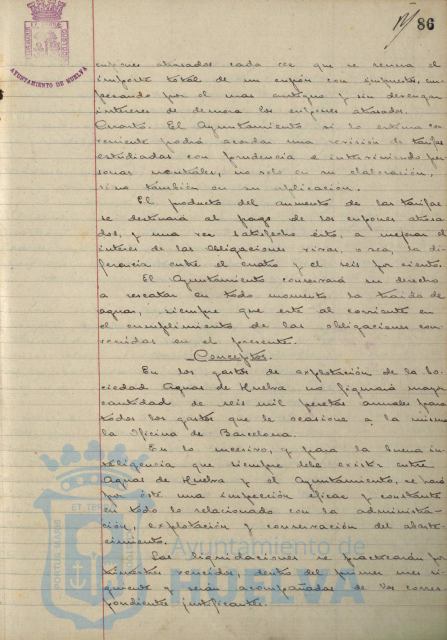 86
AYUNTAMIENTO DE HUELVA
cupones atrasados cada vez que se reuna el
importe total de un cupón con impuestos, em-
pezando por el mas antiguo y sin devengar
intereses de demora los cupones atrasados.
Cuarto. El Ayuntamiento si lo estima con-
veniente podrá acordar una revisión de tarifas
estudiadas con prudencia e interviniendo per-
sonas neutrales, no solo en su elaboración,
sino también en su aplicación.
El producto del aumento de las tarifas
se destinará al pago de los cupones atrasa-
dos, y una vez satisfecho ésto, a mejorar el
interés de las Obligaciones vivas, o sea, la di-
ferencia entre el cuatro y el seis por ciento.
El Ayuntamiento conservará su derecho
a rescatar en todo momento la traida de
aguas, siempre que esté al corriente en
el cumplimiento de las obligaciones con-
venidas en el presente.
Conceptos.
En los gastos de explotación de la So-
ciedad Aguas de Huelva no figurará mayor
cantidad de seis mil pesetas anuales para
todos los gastos que le ocasione a la misma
la Oficina de Barcelona.
En lo sucesivo, y para la buena in-
teligencia que siempre debe existir entre
Aguas de Huelva y el Ayuntamiento, se hará
por éste una inspección eficaz y constante
en todo lo relacionado con la administra-
ción, explotación y conservación del abaste-
cimiento.
Las liquidaciones se practicarán por
trimestres vencidos, dentro del primer mes si-
guiente y serán acompañadas de los corres-
pondientes justificantes.
Ayuntamiento de
HUELVA